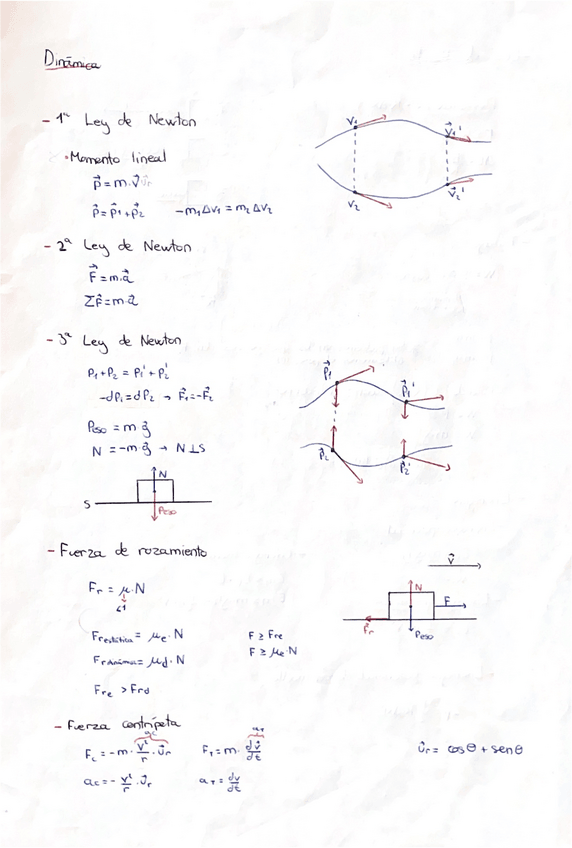 Dinámica
- 1ª Ley de Newton
• Momento lineal
p⃗ = m·v⃗
p⃗ = p⃗1 + p⃗2    -m1Δv1 = m2Δv2
v1
v⃗1'
v2
v⃗2'
- 2ª Ley de Newton
F⃗ = m·a⃗
ΣF⃗ = m·a⃗
- 3ª Ley de Newton
P1 + P2 = P1' + P2'
-dP1 = dP2 → F⃗1 = -F⃗2
Peso = m g⃗
N = -m g⃗ → N ⊥ S
N
S
Peso
P⃗1
P⃗1'
P⃗2
P⃗2'
- Fuerza de rozamiento
Fr = μ·N
<1
Frestática = μe·N    F ≥ Fre
Frdinámica = μd·N    F ≥ μe·N
Fre > Frd
v⃗
N
F
F⃗r
Peso
- Fuerza centrípeta
ac    aT
Fc = -m · v²/r · u⃗r    FT = m · dv⃗/dt    ûr = cosθ + senθ
ac = - v²/r · u⃗r    aT = dv/dt